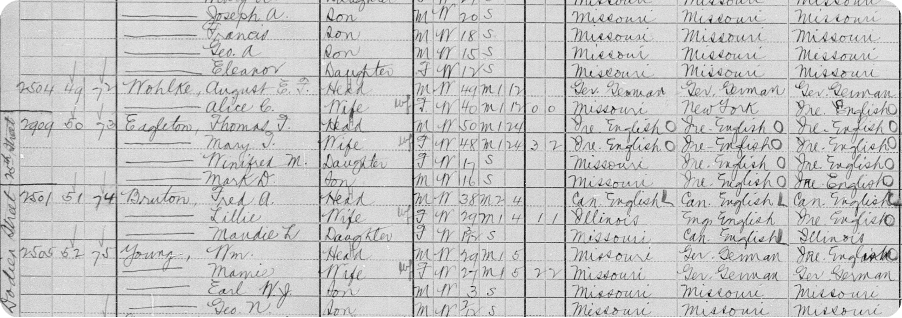 Joseph A. Son M W 20 S Missouri Missouri Missouri
Francis Son M W 18 S Missouri Missouri Missouri
Geo. A Son M W 15 S Missouri Missouri Missouri
Eleanor Daughter F W 12 S Missouri Missouri Missouri
2504 49 72 Wohlke, August E. F. Head M W 49 M1 12 Ger. German Ger. German Ger. German
Alice C. Wife F W 40 M1 12 0 0 Missouri New York Ire. English
2909 50 73 Eagleton, Thomas F. Head M W 50 M1 24 Ire. English O Ire. English O Ire. English O
Mary F. Wife F W 48 M1 24 3 2 Ire. English O Ire. English O Ire. English O
Winifred M. Daughter F W 17 S Missouri Ire. English O Ire. English O
Mark D. Son M W 16 S Missouri Ire. English O Ire. English O
2501 51 74 Bruton, Fred A. Head M W 38 M2 4 Can. English L Can. English L Can. English L
Lillie Wife F W 29 M1 4 1 1 Illinois Eng. English Ire. English O
Maudie L Daughter F W S Missouri Can. English L Illinois
2505 52 75 Young, Wm. Head M W 29 M1 5 Missouri Ger. German Ire. English O
Mamie Wife F W 27 M1 5 2 2 Missouri Ger. German Ger. German
Earl W. J. Son M W 3 S Missouri Missouri Missouri
Geo. N. Son M W S Missouri Missouri Missouri
Street 25th Street